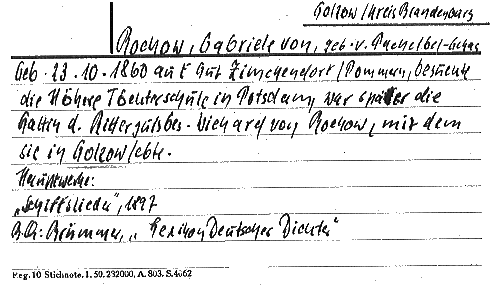 Golzow/Kreis Brandenburg
Rochow, Gabriele von, geb. v. Pachelbel-Gehag
Geb. 23.10.1860 auf Gut Zimkendorf/Pommern, besuchte
die Höhere Töchterschule in Potsdam, war später die
Gattin d. Rittergutsbes. Richard von Rochow, mit dem
sie in Golzow lebte.
Hauptwerke:
„Schiffslieder", 1897
Brümmer, „Lexikon Deutscher Dichter"
Reg. 10 Stichnote. 1. 50. 232000, A. 803. S. 4062